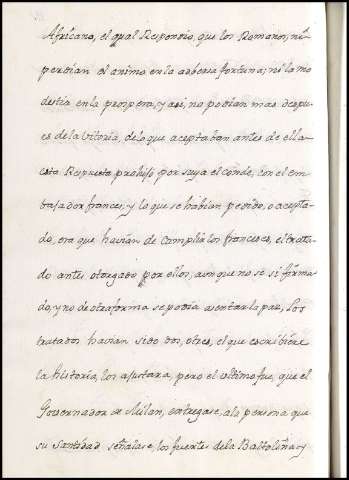 Africano, el qual Respondio, que los Romanos, ni
perdian el animo en la adbersa fortuna; ni la mo
destia en la prospera, y asi, no podian mas despu
es de la vitoria, de lo que aceptaban antes de ella
esta Respuesta prohijo por suya el conde, con el em
bajador frances; y lo que se habian pedido, o acepta
do, era que havian de complir los franceses, el trata
do antes otorgado por ellos, aunque no se si firma
do, y no de otra forma se podia asentar la paz, Los
tratados havian sido dos, otros, el que escribiere
la historia, los ajustara, pero el ultimo fue, que el
Governador de Milan, entregase, a la persona que
su Santidad señalase, los fuertes de la Baltolina y